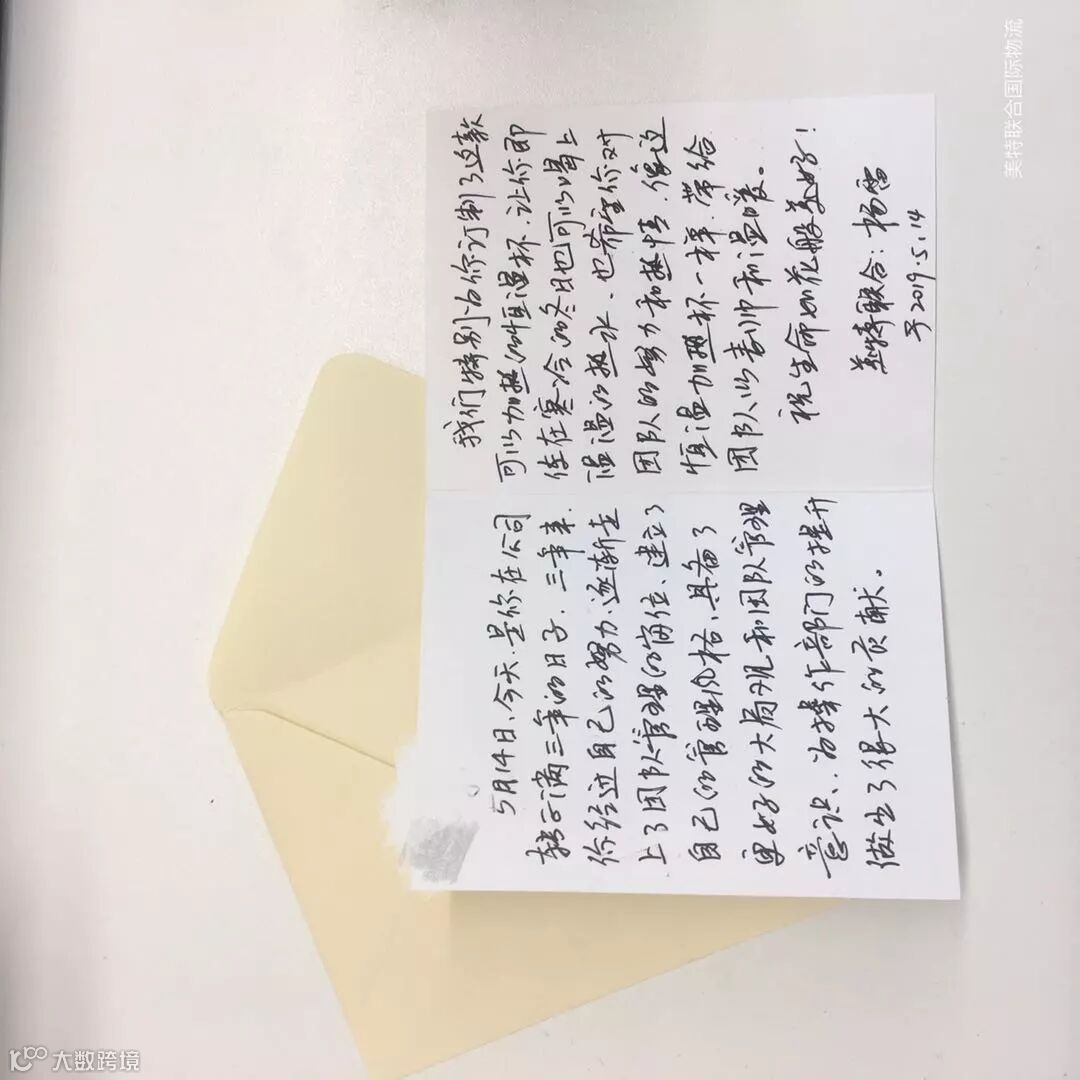 5月14日,今天,是你在公司
转正满三年的日子,三年来,
你经过自己的努力,逐渐走
上了团队管理的岗位、建立了
自己的管理风格、具备了
更好的大局观和团队管理
意识,为操作部门的提升
做出了很大的贡献。
我们特别为你订制了这款
可以加热的恒温杯,让你即
使在寒冷的冬日也可以喝上
温温的热水,也希望你对
团队的努力和热情,像这
恒温加热杯一样,带给
团队以表帅和温暖。
祝生命如花般美好!
美特联合:杨雷
于2019.5.14
美特联合国际物流
大数跨境